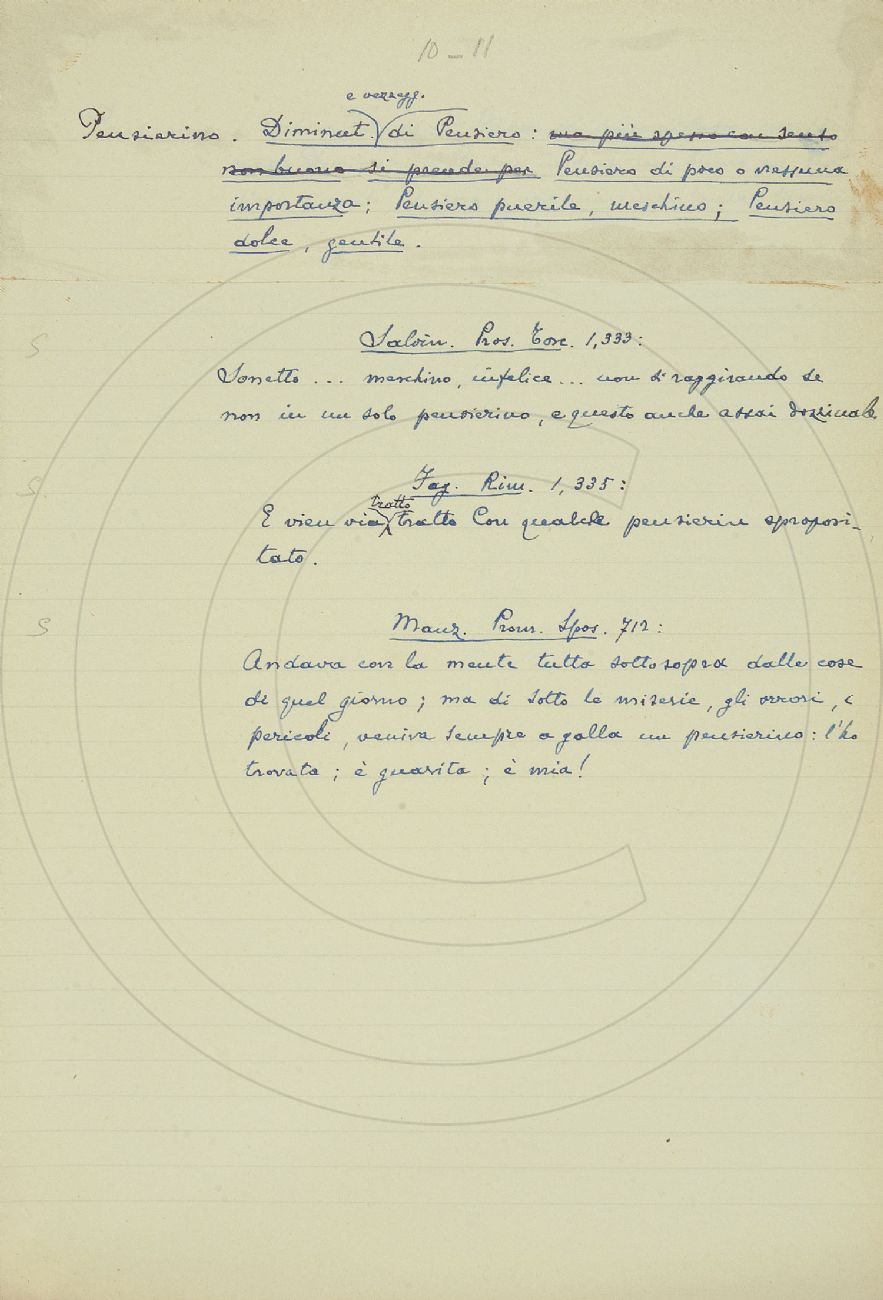 10 – 11
e vezzegg.
Pensierino. Diminut. di Pensiero: ma più spesso con senso
non buono si prende per Pensiero di poco o nessuna
importanza; Pensiero puerile, meschino; Pensiero
dolce, gentile.
S
Salvin. Pros. Tosc. 1,333:
Sonetto ... meschino, infelice ... non si raggirando se
non in un solo pensierino, e questo anche assai dozzinale.
S
Fag. Rim. 1, 335:
tratto
E vien via tratto Con qualche pensierin sproposi-
tato.
S
Manz. Prom. Spos. 712:
Andava con la mente tutta sottosopra dalle cose
di quel giorno; ma di sotto le miserie, gli orrori, i
pericoli, veniva sempre a galla un pensierino: l'ho
trovata; è guarita; è mia!